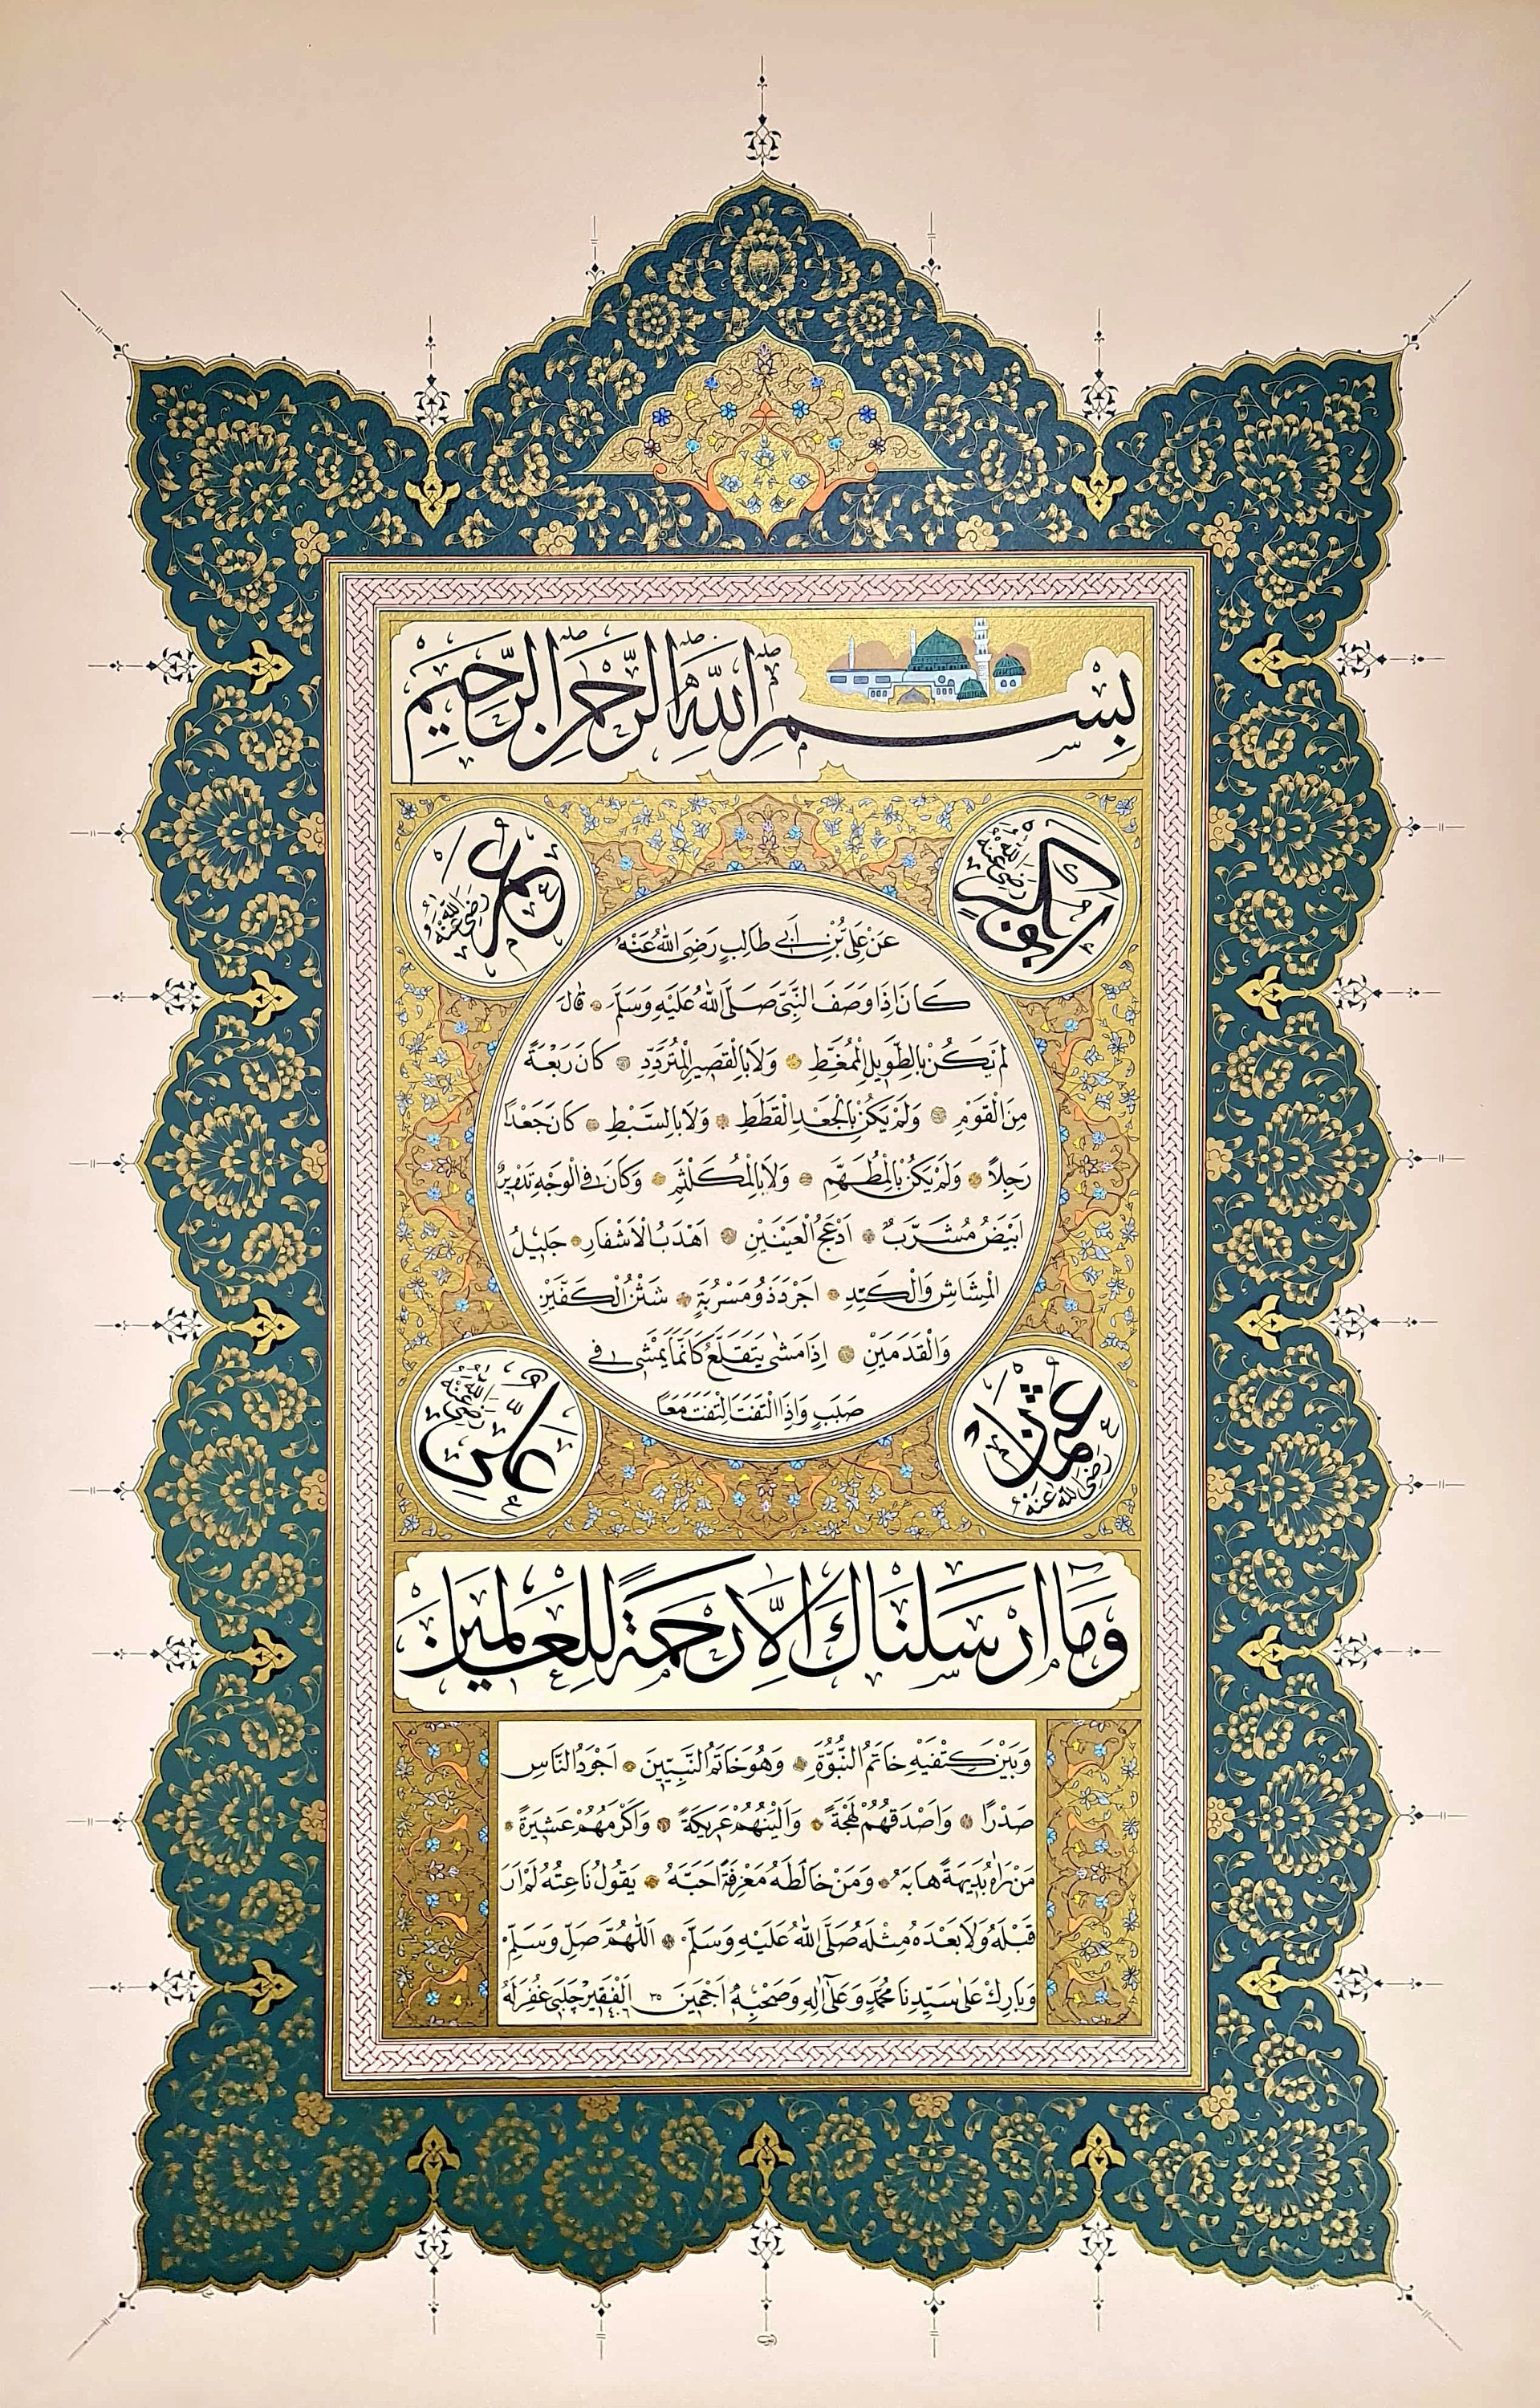 بِسْمِ اللهِ الرَّحْمٰنِ الرَّحِيمِ
ابوبكر رَضِيَ اللهُ عَنْهُ
عمر رَضِيَ اللهُ عَنْهُ
عَنْ عَلِيِّ بْنِ اَبِي طَالِبٍ رَضِيَ اللهُ عَنْهُ
كَانَ اِذَا وَصَفَ النَّبِيَّ صَلَّى اللهُ عَلَيْهِ وَسَلَّمَ قَالَ
لَمْ يَكُنْ بِالطَّوِيلِ الْمُمَغَّطِ وَلَا بِالْقَصِيرِ الْمُتَرَدِّدِ كَانَ رَبْعَةً
مِنَ الْقَوْمِ وَلَمْ يَكُنْ بِالْجَعْدِ الْقَطَطِ وَلَا بِالسَّبْطِ كَانَ جَعْدًا
رَجِلًا وَلَمْ يَكُنْ بِالْمُطَهَّمِ وَلَا بِالْمُكَلْثَمِ وَكَانَ فِي الْوَجْهِ تَدْوِيرٌ
اَبْيَضُ مُشَرَّبٌ اَدْعَجُ الْعَيْنَيْنِ اَهْدَبُ الْاَشْفَارِ جَلِيلُ
الْمُشَاشِ وَالْكَتَدِ اَجْرَدُ ذُو مَسْرُبَةٍ شَثْنُ الْكَفَّيْنِ
وَالْقَدَمَيْنِ اِذَا مَشٰى يَتَقَلَّعُ كَاَنَّمَا يَمْشِي فِي
صَبَبٍ وَاِذَا الْتَفَتَ الْتَفَتَ مَعًا
عثمان رَضِيَ اللهُ عَنْهُ
علي رَضِيَ اللهُ عَنْهُ
وَمَا اَرْسَلْنَاكَ اِلَّا رَحْمَةً لِلْعَالَمِينَ
وَبَيْنَ كَتِفَيْهِ خَاتَمُ النُّبُوَّةِ وَهُوَ خَاتَمُ النَّبِيِّينَ اَجْوَدُ النَّاسِ
صَدْرًا وَاَصْدَقُهُمْ لَهْجَةً وَاَلْيَنُهُمْ عَرِيكَةً وَاَكْرَمُهُمْ عَشِيرَةً
مَنْ رَاٰهُ بَدِيهَةً هَابَهُ وَمَنْ خَالَطَهُ مَعْرِفَةً اَحَبَّهُ يَقُولُ نَاعِتُهُ لَمْ اَرَ
قَبْلَهُ وَلَا بَعْدَهُ مِثْلَهُ صَلَّى اللهُ عَلَيْهِ وَسَلَّمَ اَللّٰهُمَّ صَلِّ وَسَلِّمْ
وَبَارِكْ عَلٰى سَيِّدِنَا مُحَمَّدٍ وَعَلٰى اٰلِهِ وَصَحْبِهِ اَجْمَعِينَ اَلْفَقِيرْ چَلَبِي غُفِرَ لَهُ